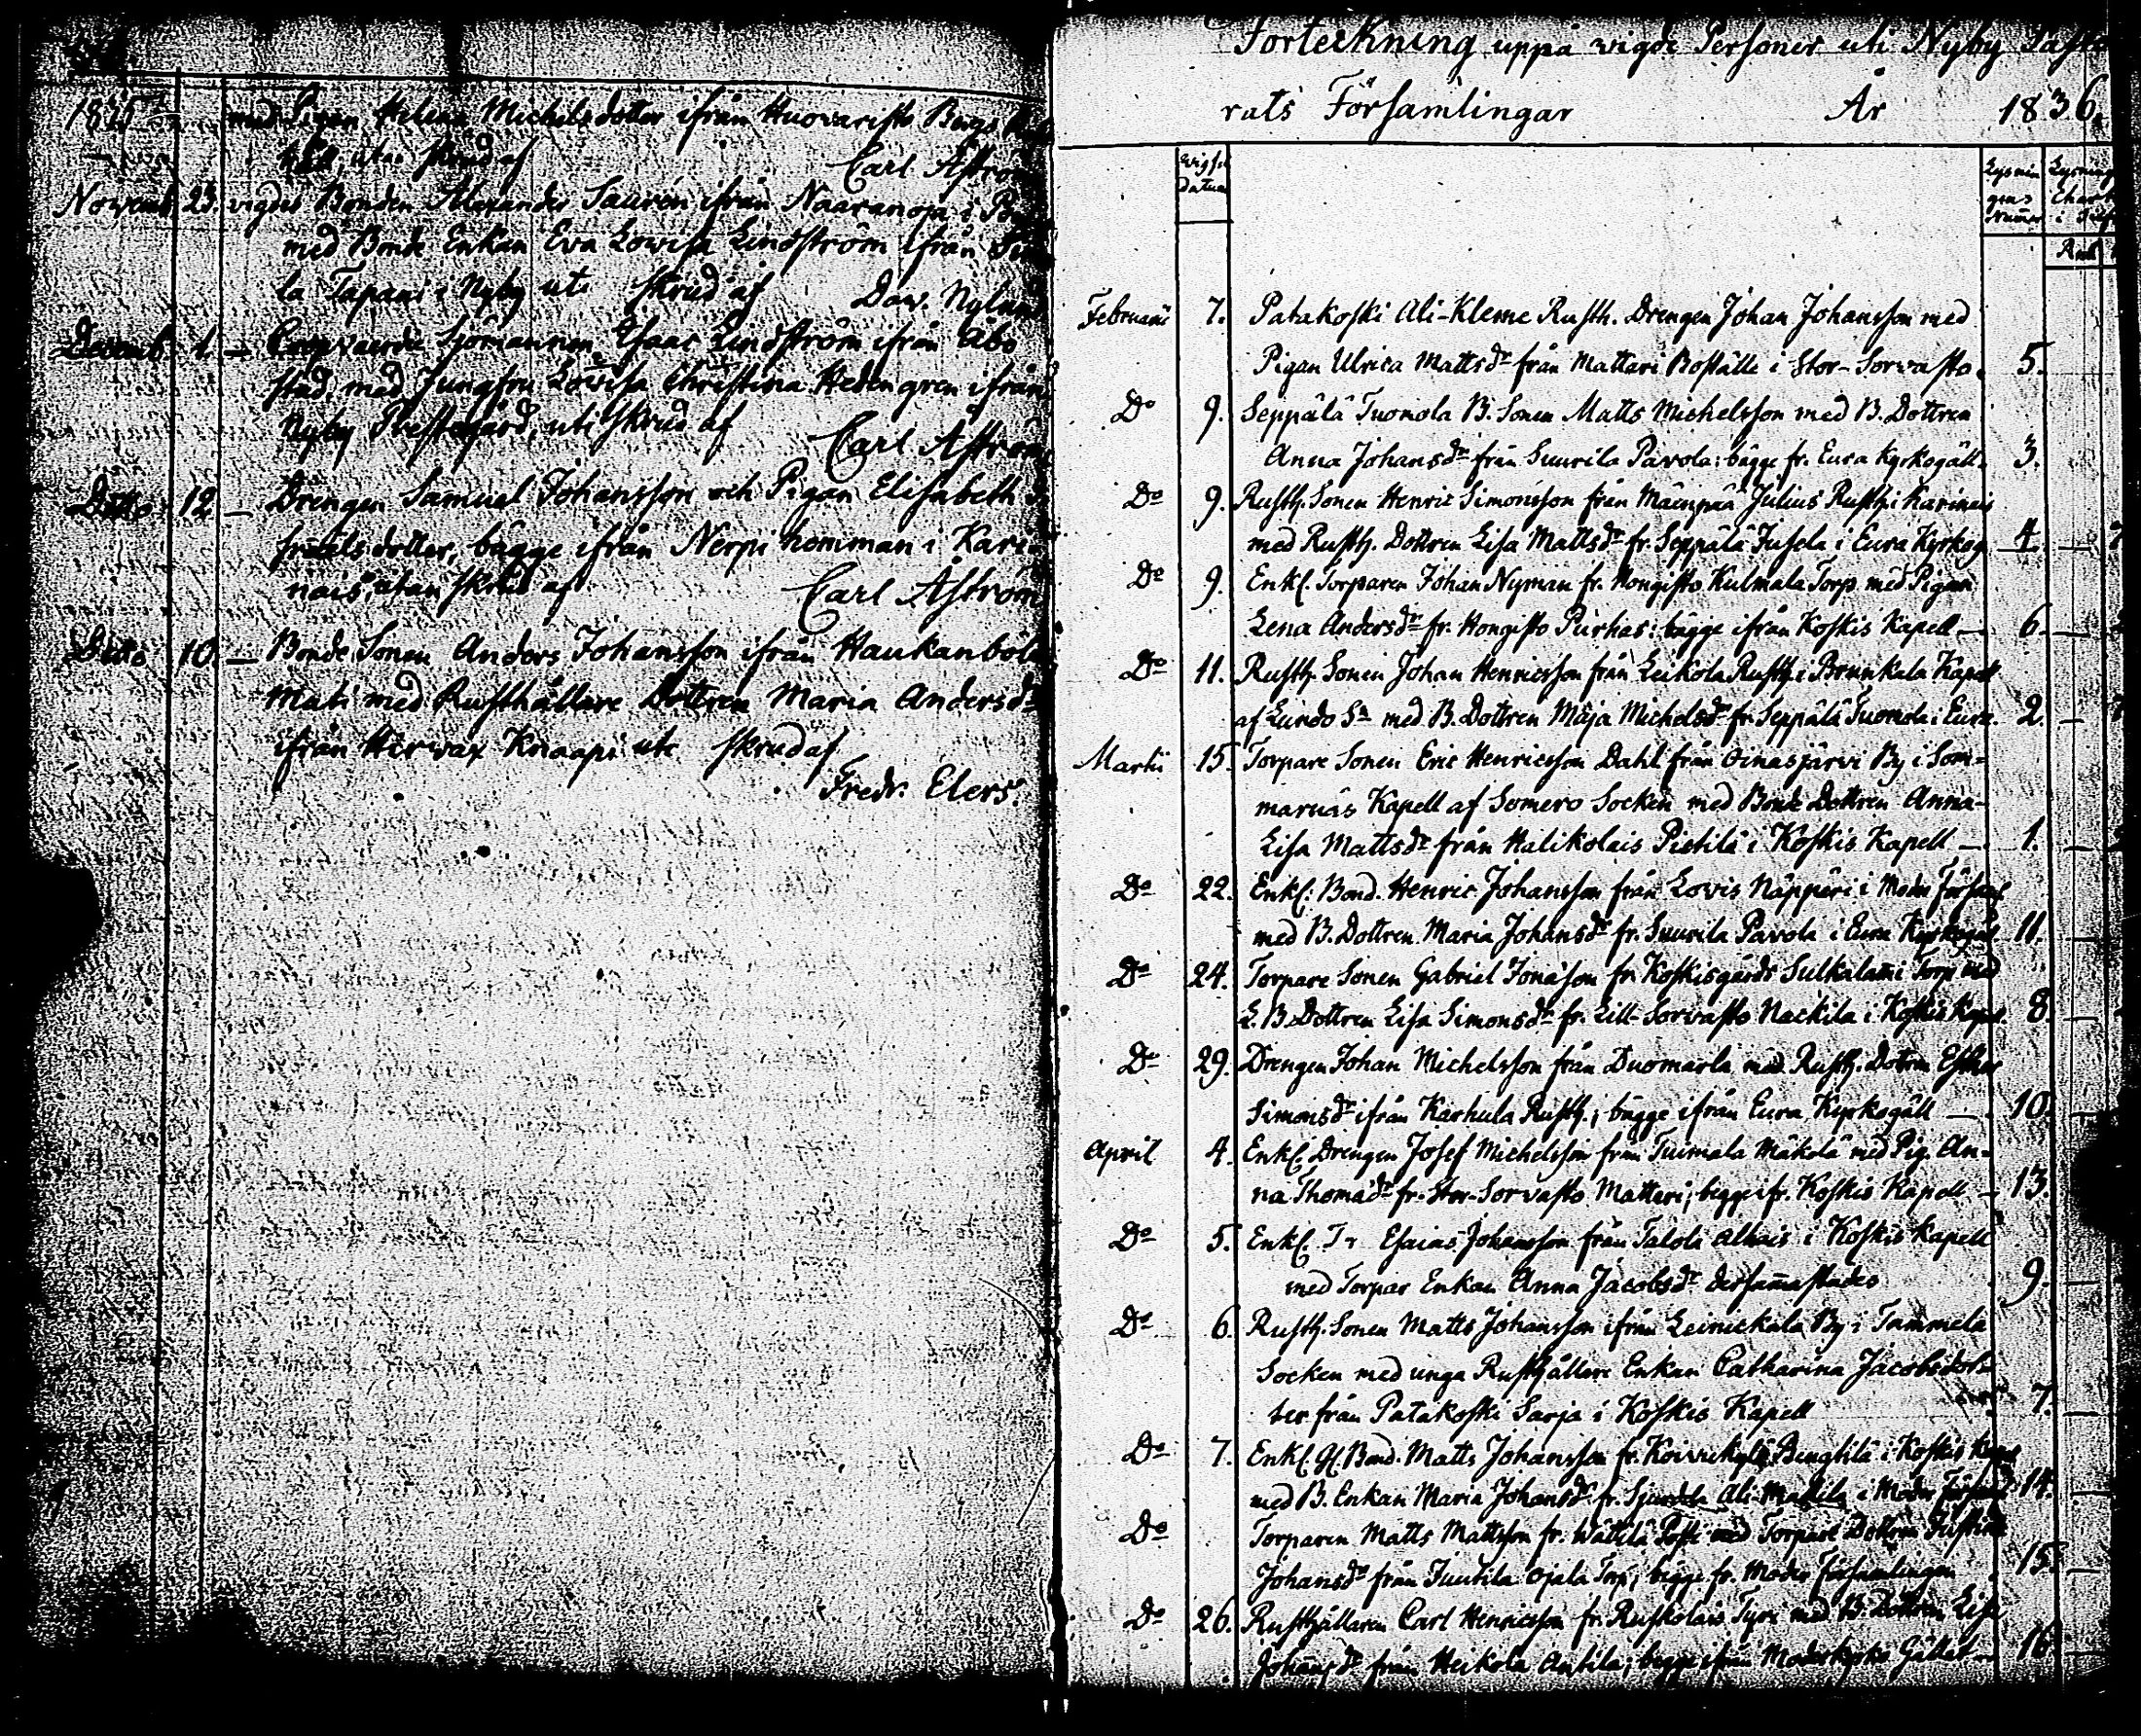 1835
med Pigan Helena Michelsdotter ifrån Huovaristo Bergs
utan skrud af Carl Åström
Novemb. 23. vigdes Bonden Alexander Saurén ifrån Naaranoja i
med Bonde Enkan Eva Lovisa Lindström ifrån
la Tapani i Nyby utі skrud af Dav. Nylund
Decemb. 1. — Sjömannen Isaac Lindström ifrån Åbo
stad, med Jungfru Lovisa Christina Hedengren ifrån
Nyby Prestegård, uti skrud af Carl Åström
Ditto 12 — Drengen Samuel Johansson och Pigan Elisabeth
frielsdotter, bägge ifrån Nerpi hemman i Kari
nais, utan skrud af Carl Åström
Ditto 10. — Bonde Sonen Anders Johansson ifrån Haukanböle
Mati med Rusthållare Dottren Maria Andersdr
ifrån Hirwax Knaapi ute skrud af
Fredr. Elers.
Förteckning uppå vigde Personer uti Nyby Pasto
rats Församlingar År 1836.
Wigs. datum
Lysnin gens Numer
Lysnings Charta
Februarii 7. Patakoski Ali-Kleme Rusth. Drengen Johan Johansson med
Pigan Ulrica Mattsdr från Mattari Boställe i Stor-Sorvasto. 5.
Do 9. Seppälä Tuomola B. Sonen Matts Michelsson med B. Dottren
Anna Johansdr från Suurila Pavola: bägge fr. Eura Kyrkogäll. 3.
Do 9. Rusth. Sonen Henric Simonsson från Mäenpää Julius Rusth. i Karinais
med Rusth. Dottren Lisa Mattsdr fr. Seppälä Jusela i Eura Kyrkog. 4. —
Do 9. Enkl. Torparen Johan Nyman fr. Hongisto Kulmala Torp med Pigan
Lena Andersdr fr. Hongisto Purhas: bägge ifrån Koskis Kapell — 6. —
Do 11. Rusth. Sonen Johan Henricsson från Leikola Rusth. i Prunkala Kapell
af Lundo Sn med B. Dottren Maja Michelsdr fr. Seppälä Tuomola i Eura. 2. —
Martii 15. Torpare Sonen Eric Henricsson Dahl från Oinasjärvi By i Som=
marnäs Kapell af Somero Socken med Bonde Dottren Anna-
Lisa Mattsdr från Halikolais Pietilä i Koskis Kapell — 1. —
Do 22. Enkl: Bond. Henric Johansson från Lovis Näppäri i Moder Förs.
med B. Dottren Maria Johansdr fr. Suurila Pavola i Eura Kyrkogäl 11. —
Do 24. Torpare Sonen Gabriel Jonasson fr. Koskisgårds Sulkalami Torp med
L. B. Dottren Lisa Simonsdr fr. Lill-Sorvasto Nackila i Koskis Kapel. 8. —
Do 29. Drengen Johan Michelsson från Duomarla med Rusth. Dottren Esther
Simonsdr ifrån Karhula Rusth.; bägge ifrån Eura Kyrkogäll — 10. —
April 4. Enkl. Drengen Josef Michelsson från Tuimala Mäkolä med Pig. An=
na Thomædr fr. Stor-Sorvasto Mattari; begge fr. Koskis Kapell — 13.
Do 5. Enkl. Esaias Johansson från Talola Alhais i Koskis Kapell
med Torpar Enkan Anna Jacobsdr dersammastädes 9. —
Do 6. Rusth. Sonen Matts Johansson ifrån Leinickala By i Tammela
Socken med unga Rusthållare Enkan Catharina Jacobsdot=
ter från Patakoski Sarja i Koskis Kapell 7. —
Do 7. Enkl. Gl. Bond. Matts Johansson fr. Koivukylä Benghtilä i Koskis Kapel
med B. Enkan Maria Johansdr fr. Ali-Mattila i Moder Församl. 14. —
Do Torparen Matts Mattsson fr. Wättilä med Torpare Dottren Justina
Johansdr från Juutila Ojala Torp; bägge fr. Moder Församlingen 15. —
Do 26. Rusthållaren Carl Henricsson fr. Ruskolais Tyri med B. Dottren Lisa
Johansdr från Heikola Antila; begge ifrån Moderkyrko Gället 16. —